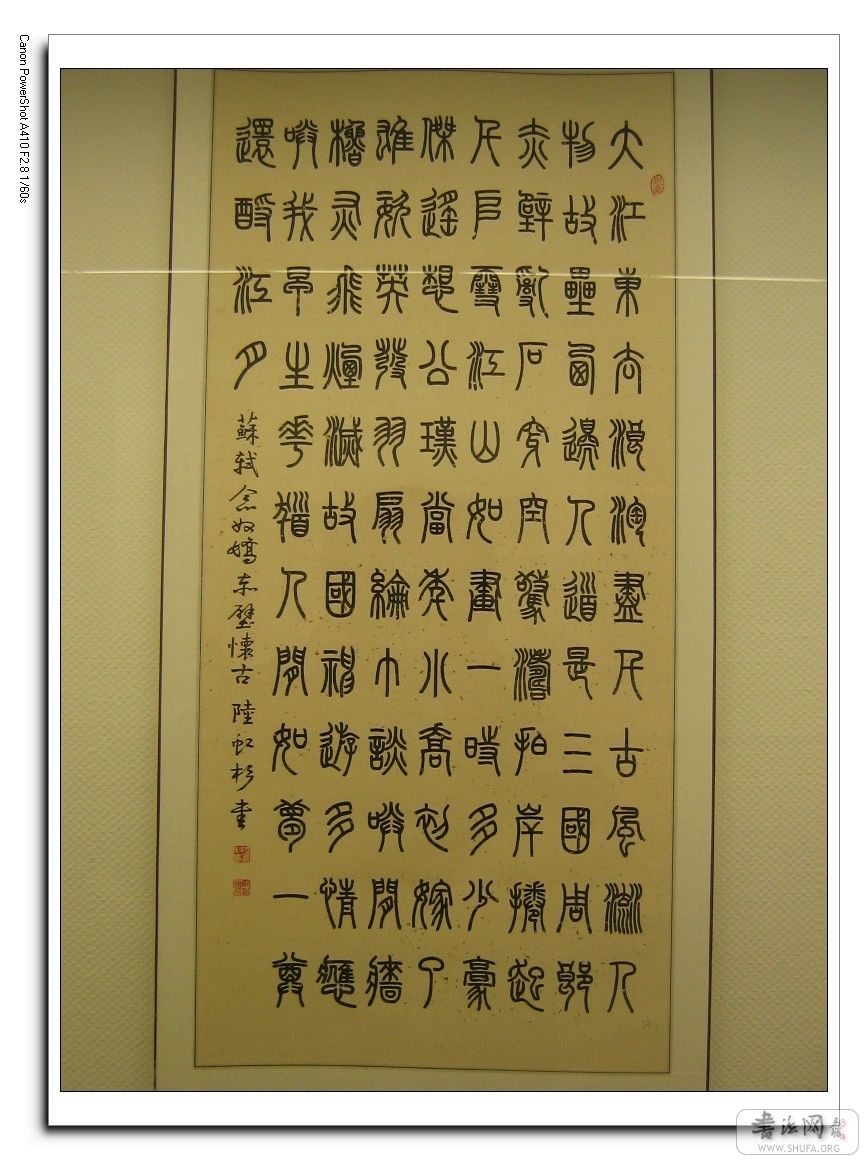 大江東去浪淘盡千古風流人
物故壘西邊人道是三國周郎
赤壁亂石穿空驚濤拍岸捲起
千堆雪江山如畫一時多少豪
傑遙想公瑾當年小喬初嫁了
雄姿英發羽扇綸巾談笑間檣
櫓灰飛煙滅故國神遊多情應
笑我早生華髮人間如夢一尊
還酹江月
蘇軾念奴嬌赤壁懷古 陸虹杉書
Canon PowerShot A410 F2.8 1/60s
书法网
WWW.SHUFA.ORG